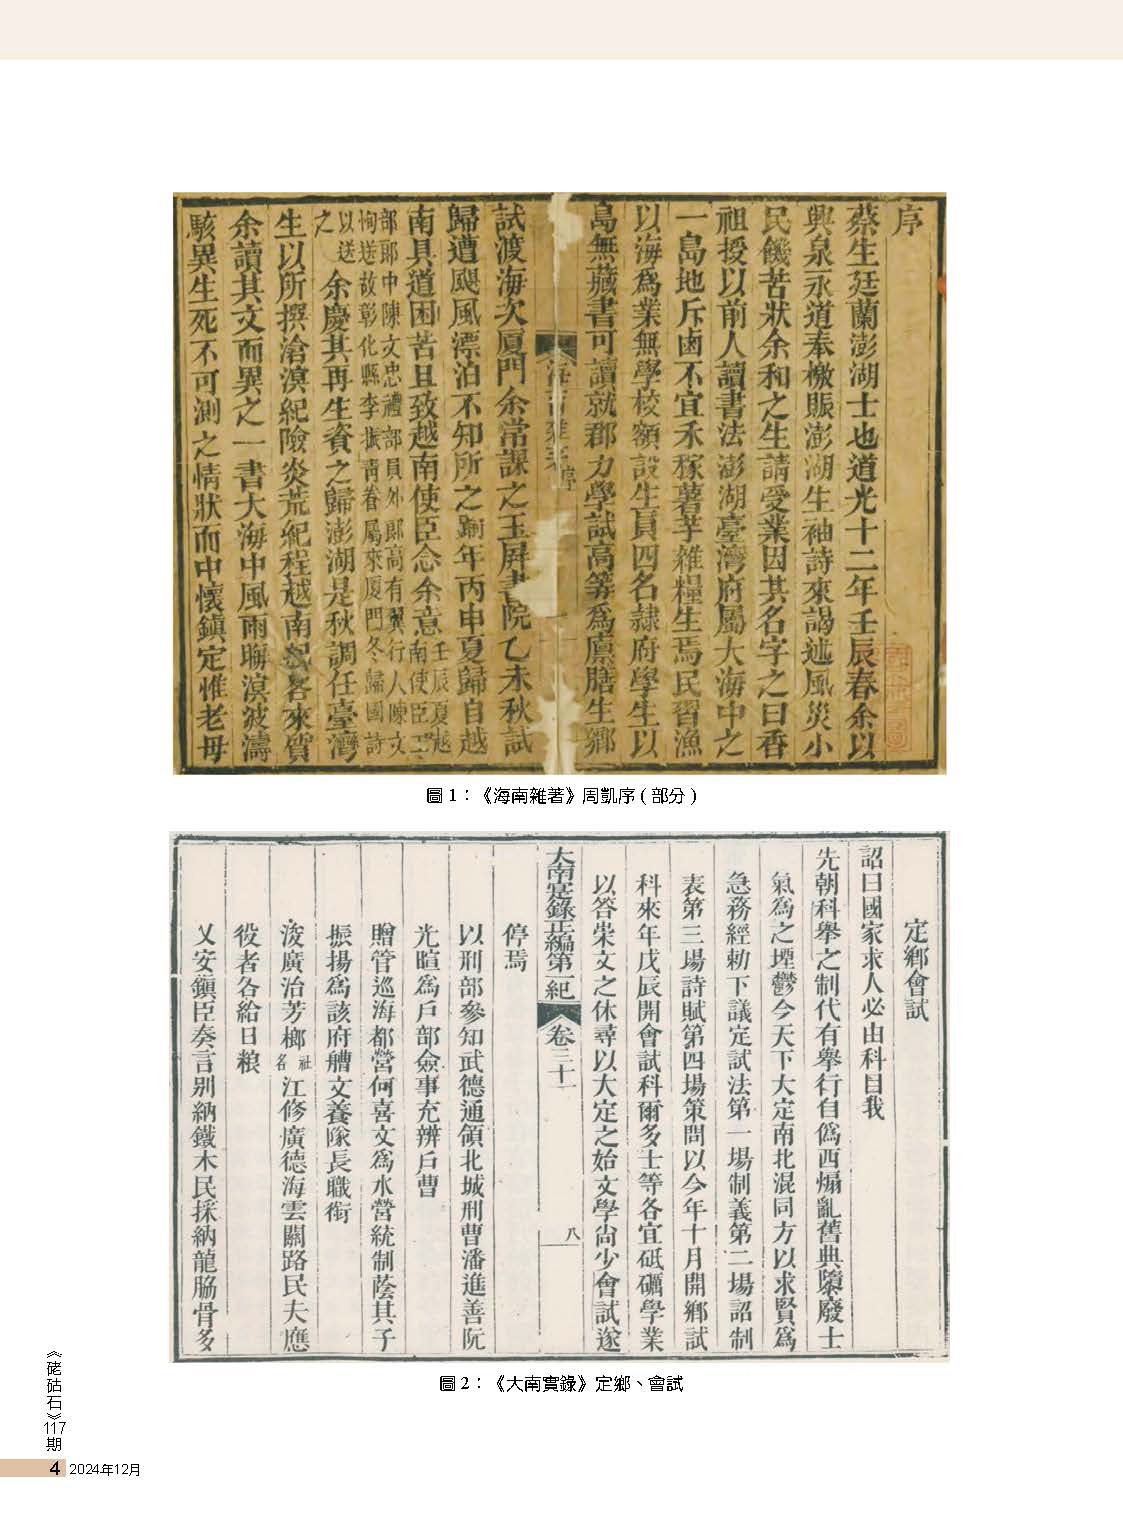 序
蔡生廷蘭澎湖士也道光十二年壬辰春余以
興泉永道奉檄賑澎湖生袖詩來謁述風災小
民饑苦狀余和之生請受業因其名字之曰香
祖授以前人讀書法澎湖臺灣府屬大海中之
一島地斥鹵不宜禾稼薯芋雜糧生焉民習漁
以海為業無學校額設生員四名隸府學生以
島無藏書可讀就郡力學試高等為廩膳生鄉
海南雜著 序
試渡海次厦門余常課之玉屏書院乙未秋試
歸遭颶風漂泊不知所之踰年丙申夏歸自越
南具道困苦且致越南使臣念余意壬辰夏越
南使臣工
部郎中陳文忠禮部員外郎高有翼行人陳文
恂送故彰化縣李振青眷屬來厦門冬歸國詩
以送
之余慶其再生資之歸澎湖是秋調任臺灣
生以所撰滄溟紀險炎荒紀程越南紀畧來質
余讀其文而異之一書大海中風雨聯溟波濤
駭異生死不可測之情狀而中懷鎮定惟老母
圖 1：《海南雜著》周凱序 ( 部分 )
定鄉會試
詔曰國家求人必由科目我
先朝科舉之制代有舉行自偽西煽亂舊典隳廢士
氣為之堙鬱今天下大定南北混同方以求賢為
急務經勅下議定試法第一場制義第二場詔制
表第三場詩賦第四場策問以今年十月開鄉試
科來年戊辰開會試科爾多士等各宜砥礪學業
以答崇文之休尋以大定之始文學尚少會試遂
大南寔錄正編第一紀 卷三十一 八
停焉
以刑部參知武德通領北城刑曹潘進善阮
光暄為戶部僉事充辦戶曹
贈管巡海都營何喜文為水營統制蔭其子
振揚為該府艚文養隊長職銜
浚廣治芳榔社名江修廣德海雲關路民夫應
役者各給日粮
乂安鎮臣奏言別納鐵木民採納龍脇骨多
圖 2：《大南實錄》定鄉、會試
《硓𥑮石》117期
4 2024年12月